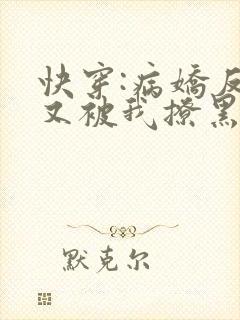 快穿:病娇反
又被我撩黑
默克尔